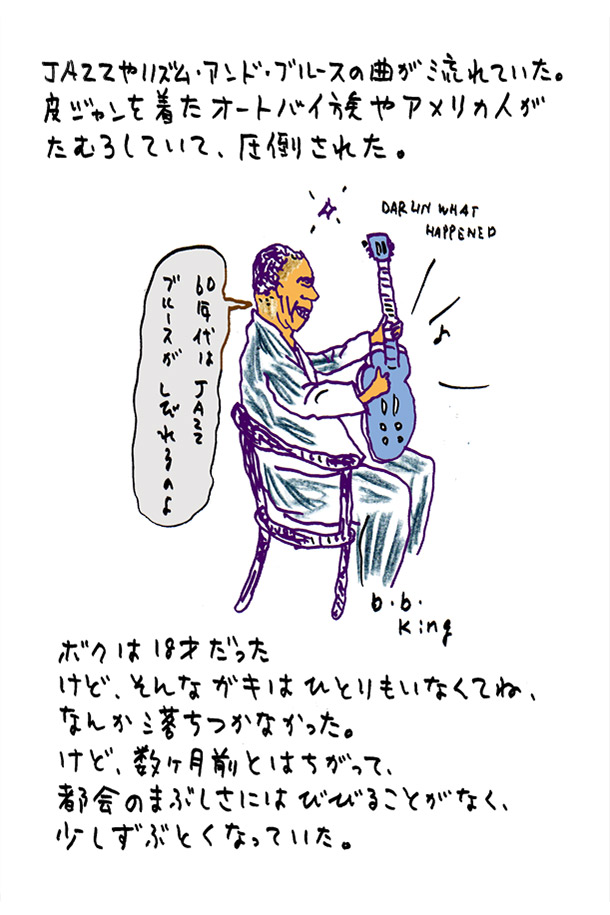 JAZZやリズム・アンド・ブルースの曲が流れていた。
皮ジャンを着たオートバイ族やアメリカ人が
たむろしていて、圧倒された。
DARLIN WHAT
HAPPENED
60年代は JAZZ
ブルースが しびれるのよ
b.b.
King
ボクは18才だった
けど、そんなガキはひとりもいなくてね、
なんか落ちつかなかった。
けど、数ヶ月前とはちがって、
都会のまぶしさにはびびることがなく、
少しずぶとくなっていた。